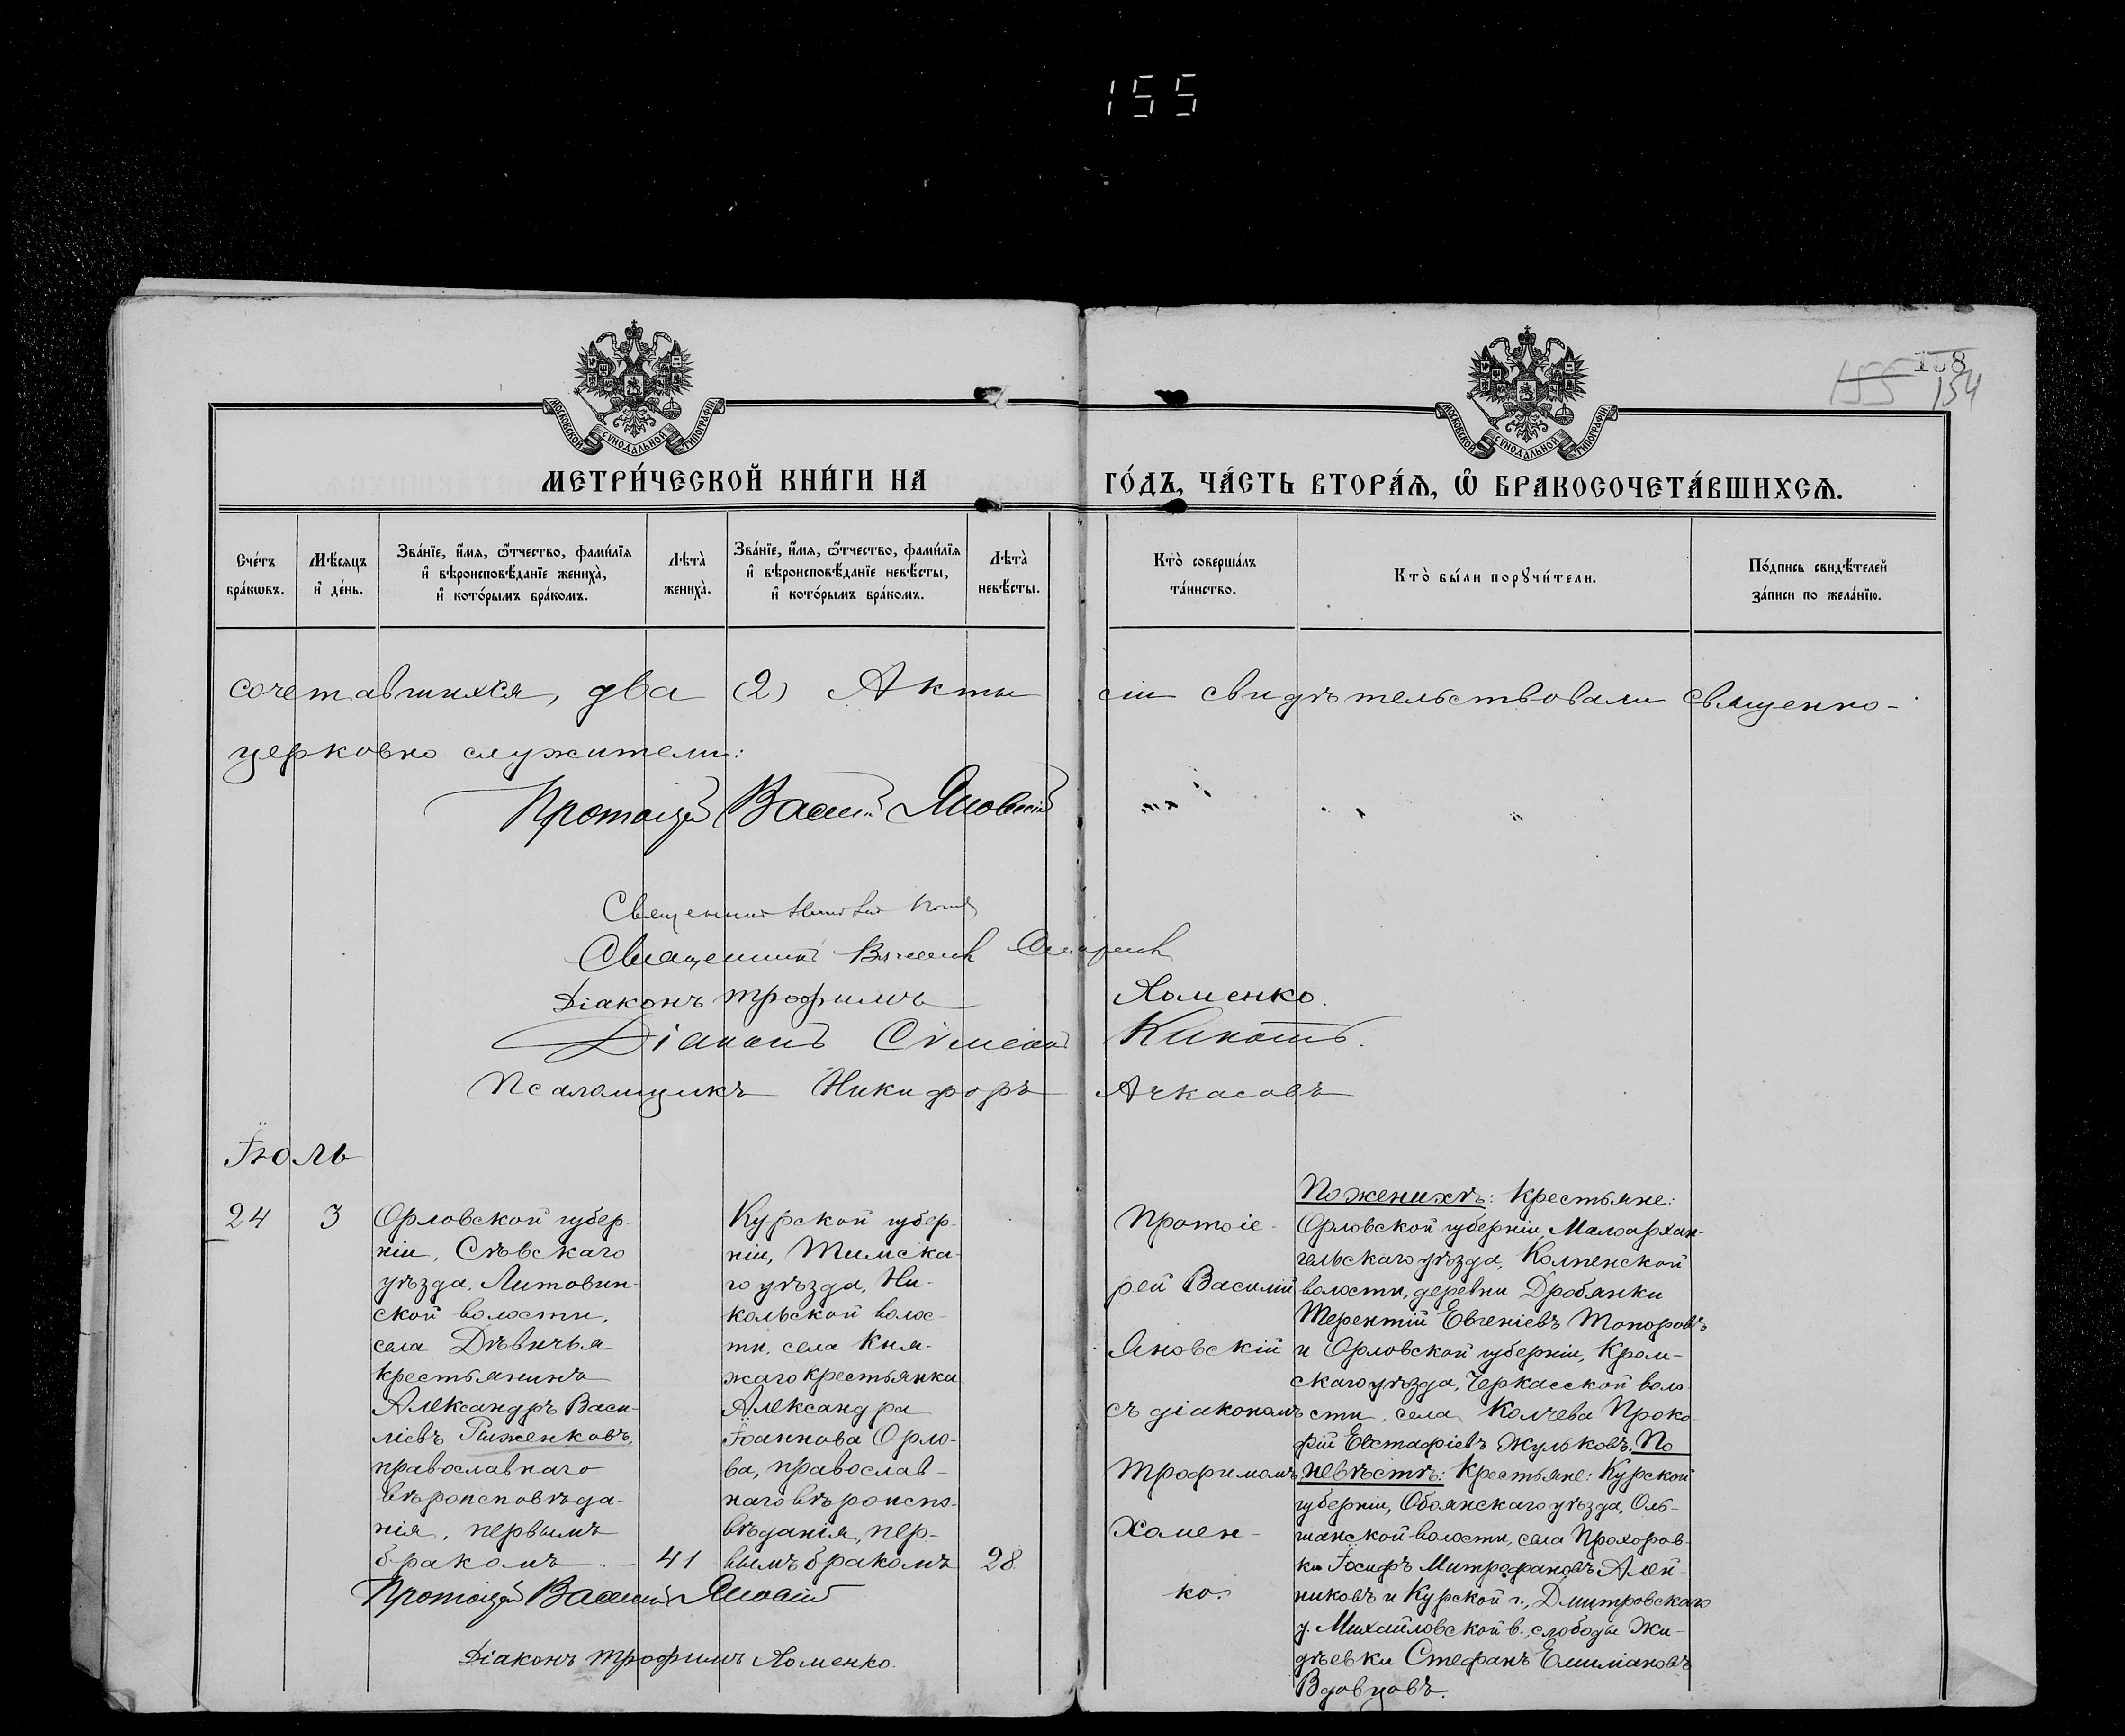 155
158
155
154
МОСКОВСКОЙ СУНОДАЛЬНОЙ ТИПОГРАФІИ
МОСКОВСКОЙ СУНОДАЛЬНОЙ ТИПОГРАФІИ
МЕТРИ́ЧЕСКОЙ КНИ́ГИ НА ГО́ДЪ, ЧА́СТЬ ВТОРА́Ѧ, Ѡ҆ БРАКОСОЧЕТА́ВШИХСѦ.
Сче́тъ бра́кѡвъ.
Мѣ́сѧцъ и҆ де́нь.
Зва́нїе, и҆́мѧ, ѻ҆́тчество, фами́лїѧ
и҆ вѣроисповѣ́данїе жениха̀,
и҆ кото́рымъ бра́комъ.
Лѣта̀ жениха̀.
Зва́нїе, и҆́мѧ, ѻ҆́тчество, фами́лїѧ
и҆ вѣроисповѣ́данїе невѣ́сты,
и҆ кото́рымъ бра́комъ.
Лѣта̀ невѣ́сты.
Кто̀ соверша́лъ та́инство.
Кто̀ бы́ли порꙋчи́тели.
По́дпись свидѣ́телей
за́писи по жела́нїю.
сочетавшихся, два (2) Акты сіи свидѣтельствовали священно-
церковно служители:
Протоіерей Василій Яновскій
Священникъ
Священникъ
Діаконъ Трофимъ Хоменко.
Діаконъ Сѵмеонъ
Псаломщикъ Никифоръ Ачкасовъ
Іюль
24
3
Орловской губер-
ніи, Сѣвскаго
уѣзда, Литовин-
ской волости,
села Дѣвичья
крестьянинъ
Александръ Васи-
ліевъ Рыженковъ,
православнаго
вѣроисповѣда-
нія, первымъ
бракомъ
41
Курской губер-
ніи, Тимска-
го уѣзда, Ни-
кольской волос-
ти, села Кня-
жаго крестьянка
Александра
Іоаннова Орло-
ва, православ-
наго вѣроиспо-
вѣданія, пер-
вымъ бракомъ
28.
Протоіе-
рей Василій
Яновскій
съ діакономъ
Трофимомъ
Хомен-
ко.
По женихѣ: крестьяне:
Орловской губерніи, Малоархан-
гельскаго уѣзда, Колпенской
волости, деревни Дробянки
Терентій Евгеніевъ Топоровъ
и Орловской губерніи, Кром-
скаго уѣзда, Черкасской воло-
сти, села Колчева Проко-
фій Евстафіевъ Жульковъ. По
невѣстѣ: крестьяне: Курской
губерніи, Обоянскаго уѣзда, Оль-
шанской волости, села Прохоров-
ки Іосифъ Митрофановъ Алей-
никовъ и Курской г., Дмитровскаго
у. Михайловской в., слободы Жи-
дѣевки Стефанъ Емиліановъ
Вдовцовъ.
Протоіерей Василій Яновскій
Діаконъ Трофимъ Хоменко.